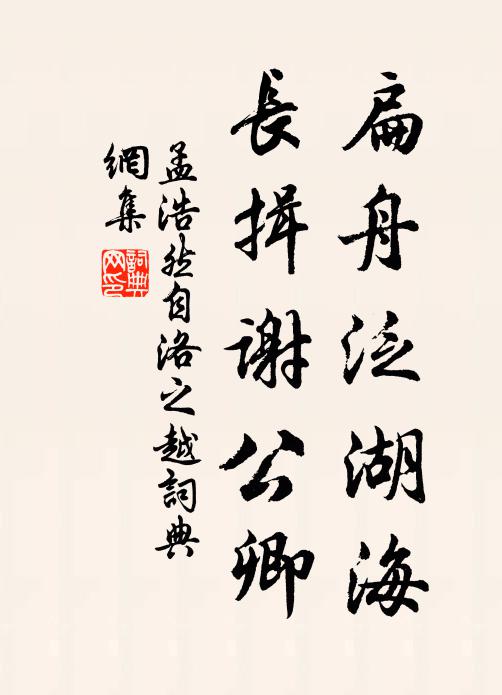 扁舟泛湖海
長揖謝公卿
孟浩然自洛之越詞典
網集
詞典
网印